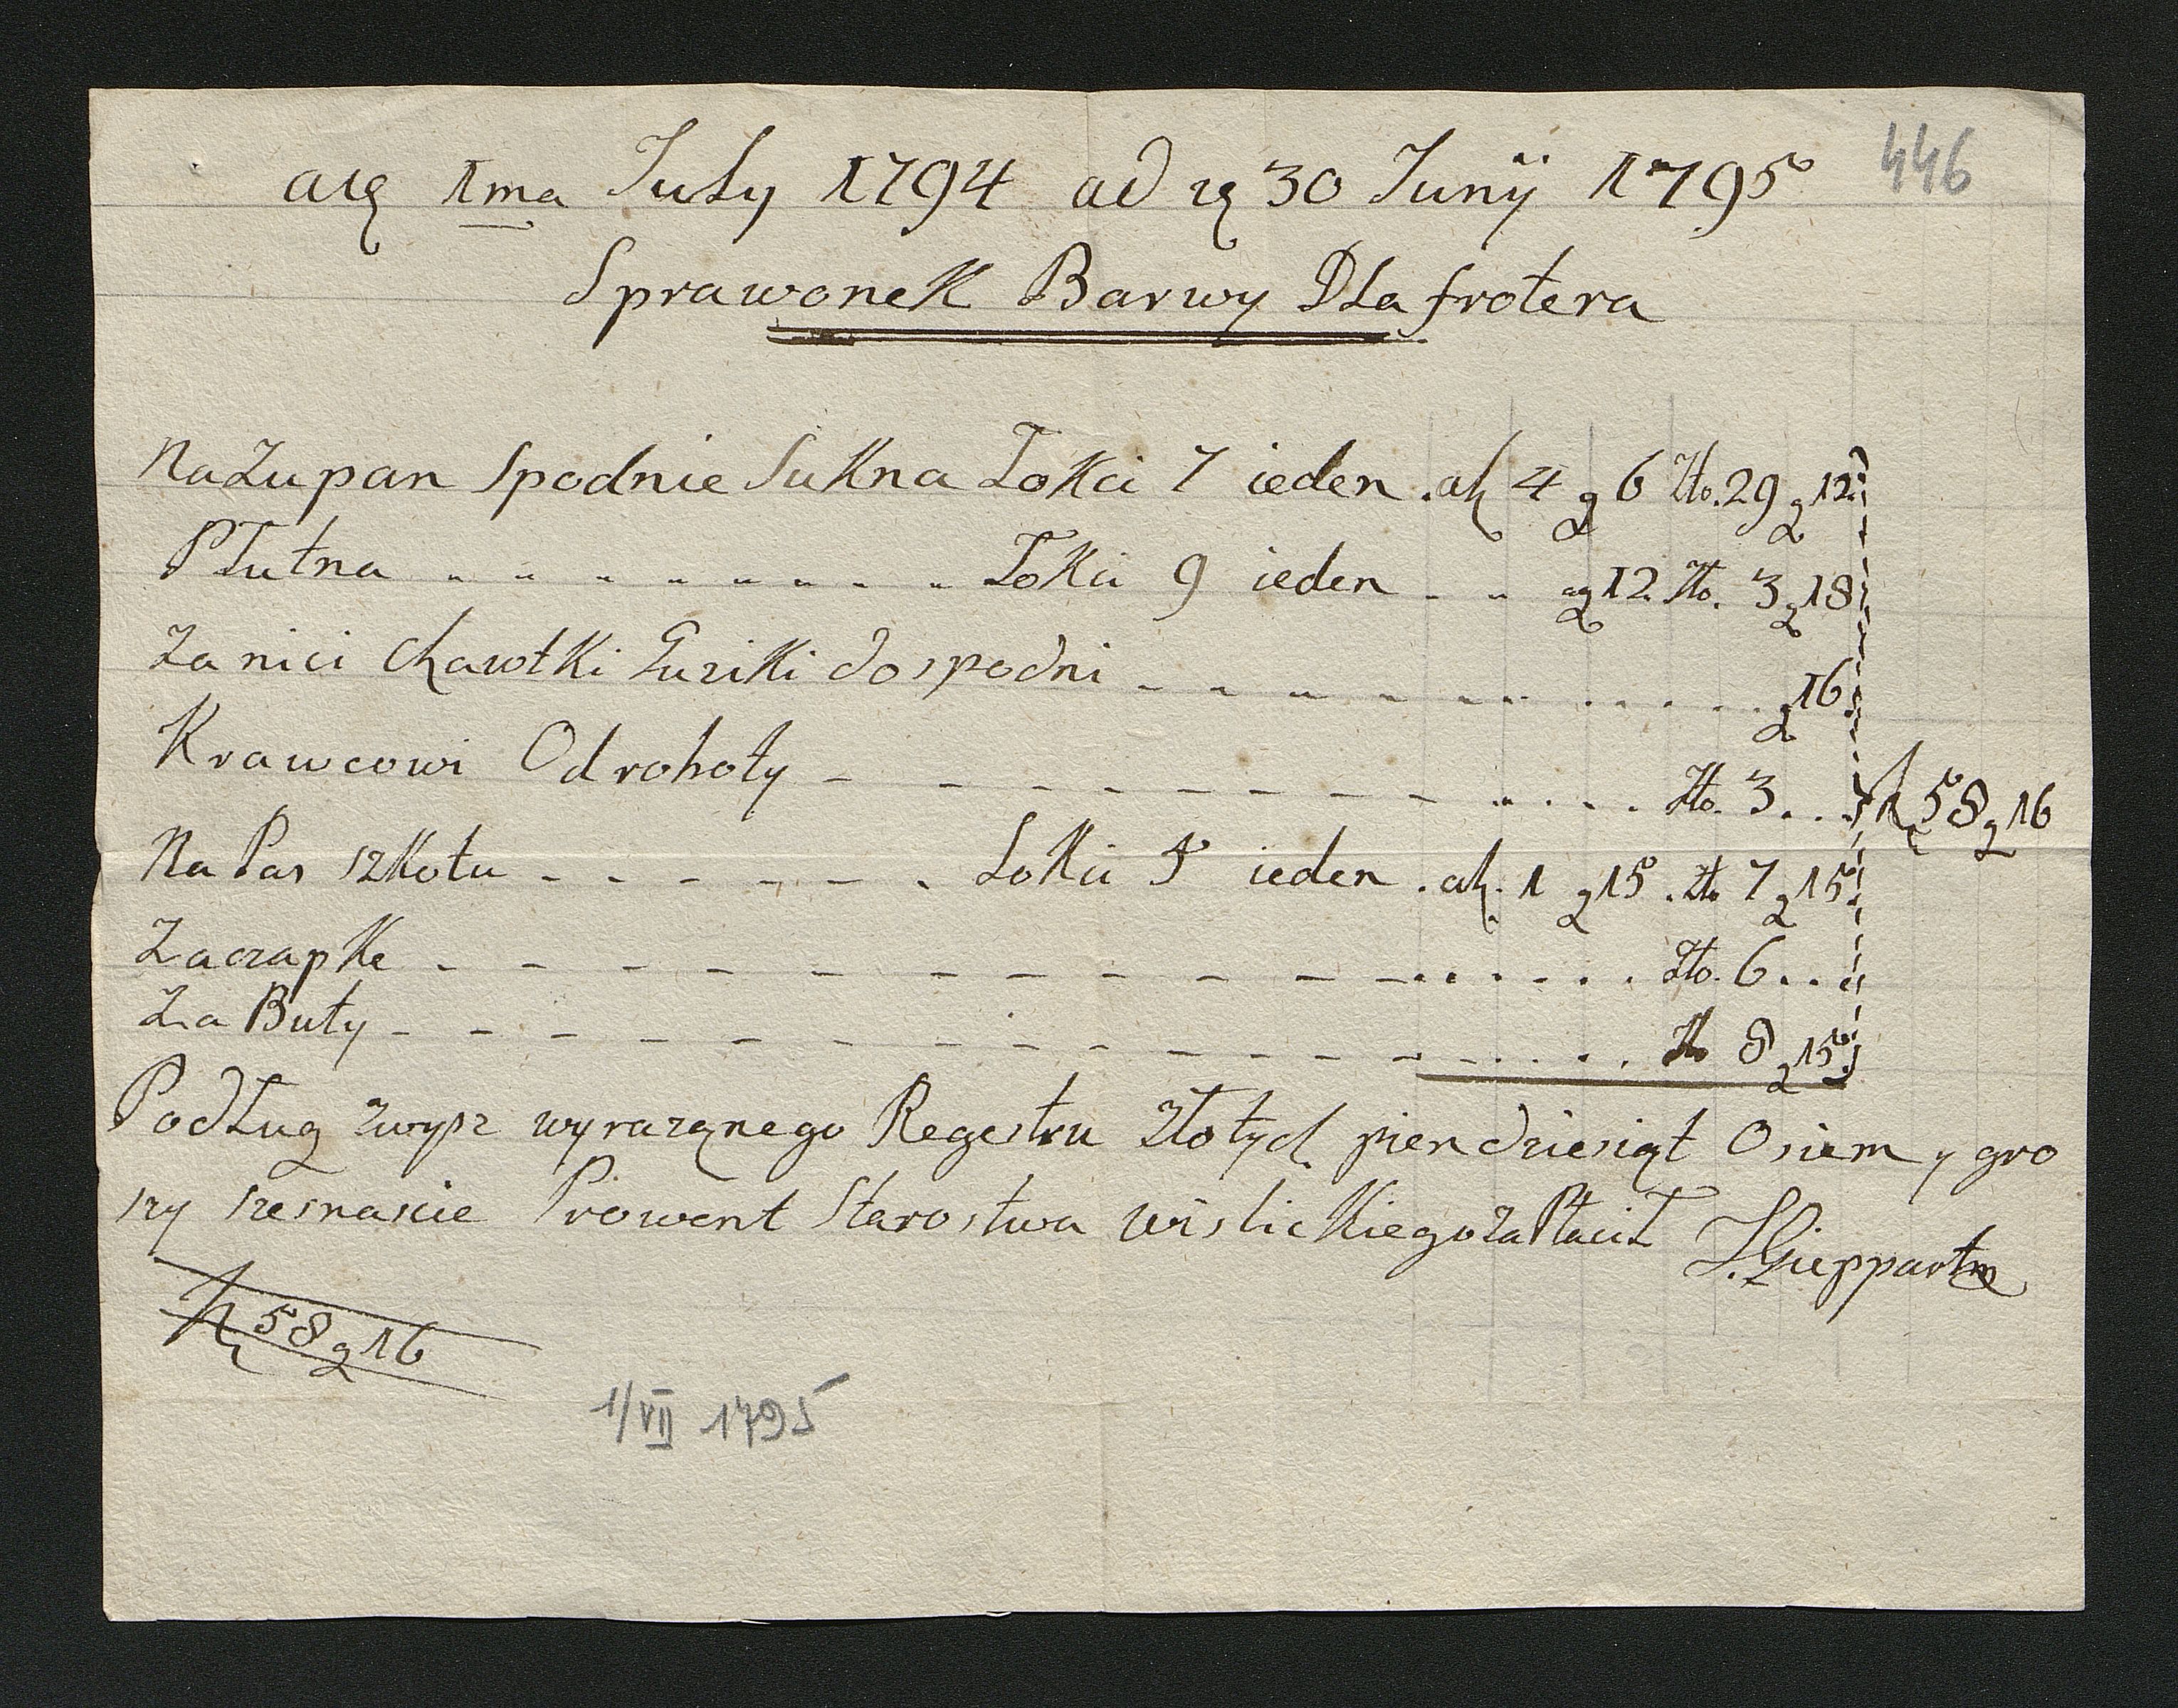 a1ą 1ma July 1794 ad rą 30 Junÿ 1795 446
Sprawonek Barwy Dla frotera
Na Zupan Spodnie Sukna Łokci 7 ieden . a zł 4 g 6 Zło. 29 g 12
Płutna - - - - - - - - Łokci 9 ieden - - ag 12. Zło. 3 g 18
Za nici chawtki Guziki do spodni - - - - - - . . . . . . g 16
Krawcowi Od roboty - - - - - - - - . . . . Zło. 3 . . . zł 58 g 16
Na Pas szkotu - - - - - - Łokci 5 ieden . a zł. 1 g 15 . Zło 7 g 15
Za czapke - - - - - - - - - - . . . . . Zło. 6 . . .
Za Buty - - - - - - - - - - - - . . . . Zło 8 g 15
Podług zwysz wyrazęnego Regestru Złotych piendziesiąt Osiem y gro
szy szesnascie Prowent Starostwa wislickiego zapłacił J. Gieppartm
zł 58 g 16
1/VII 1795